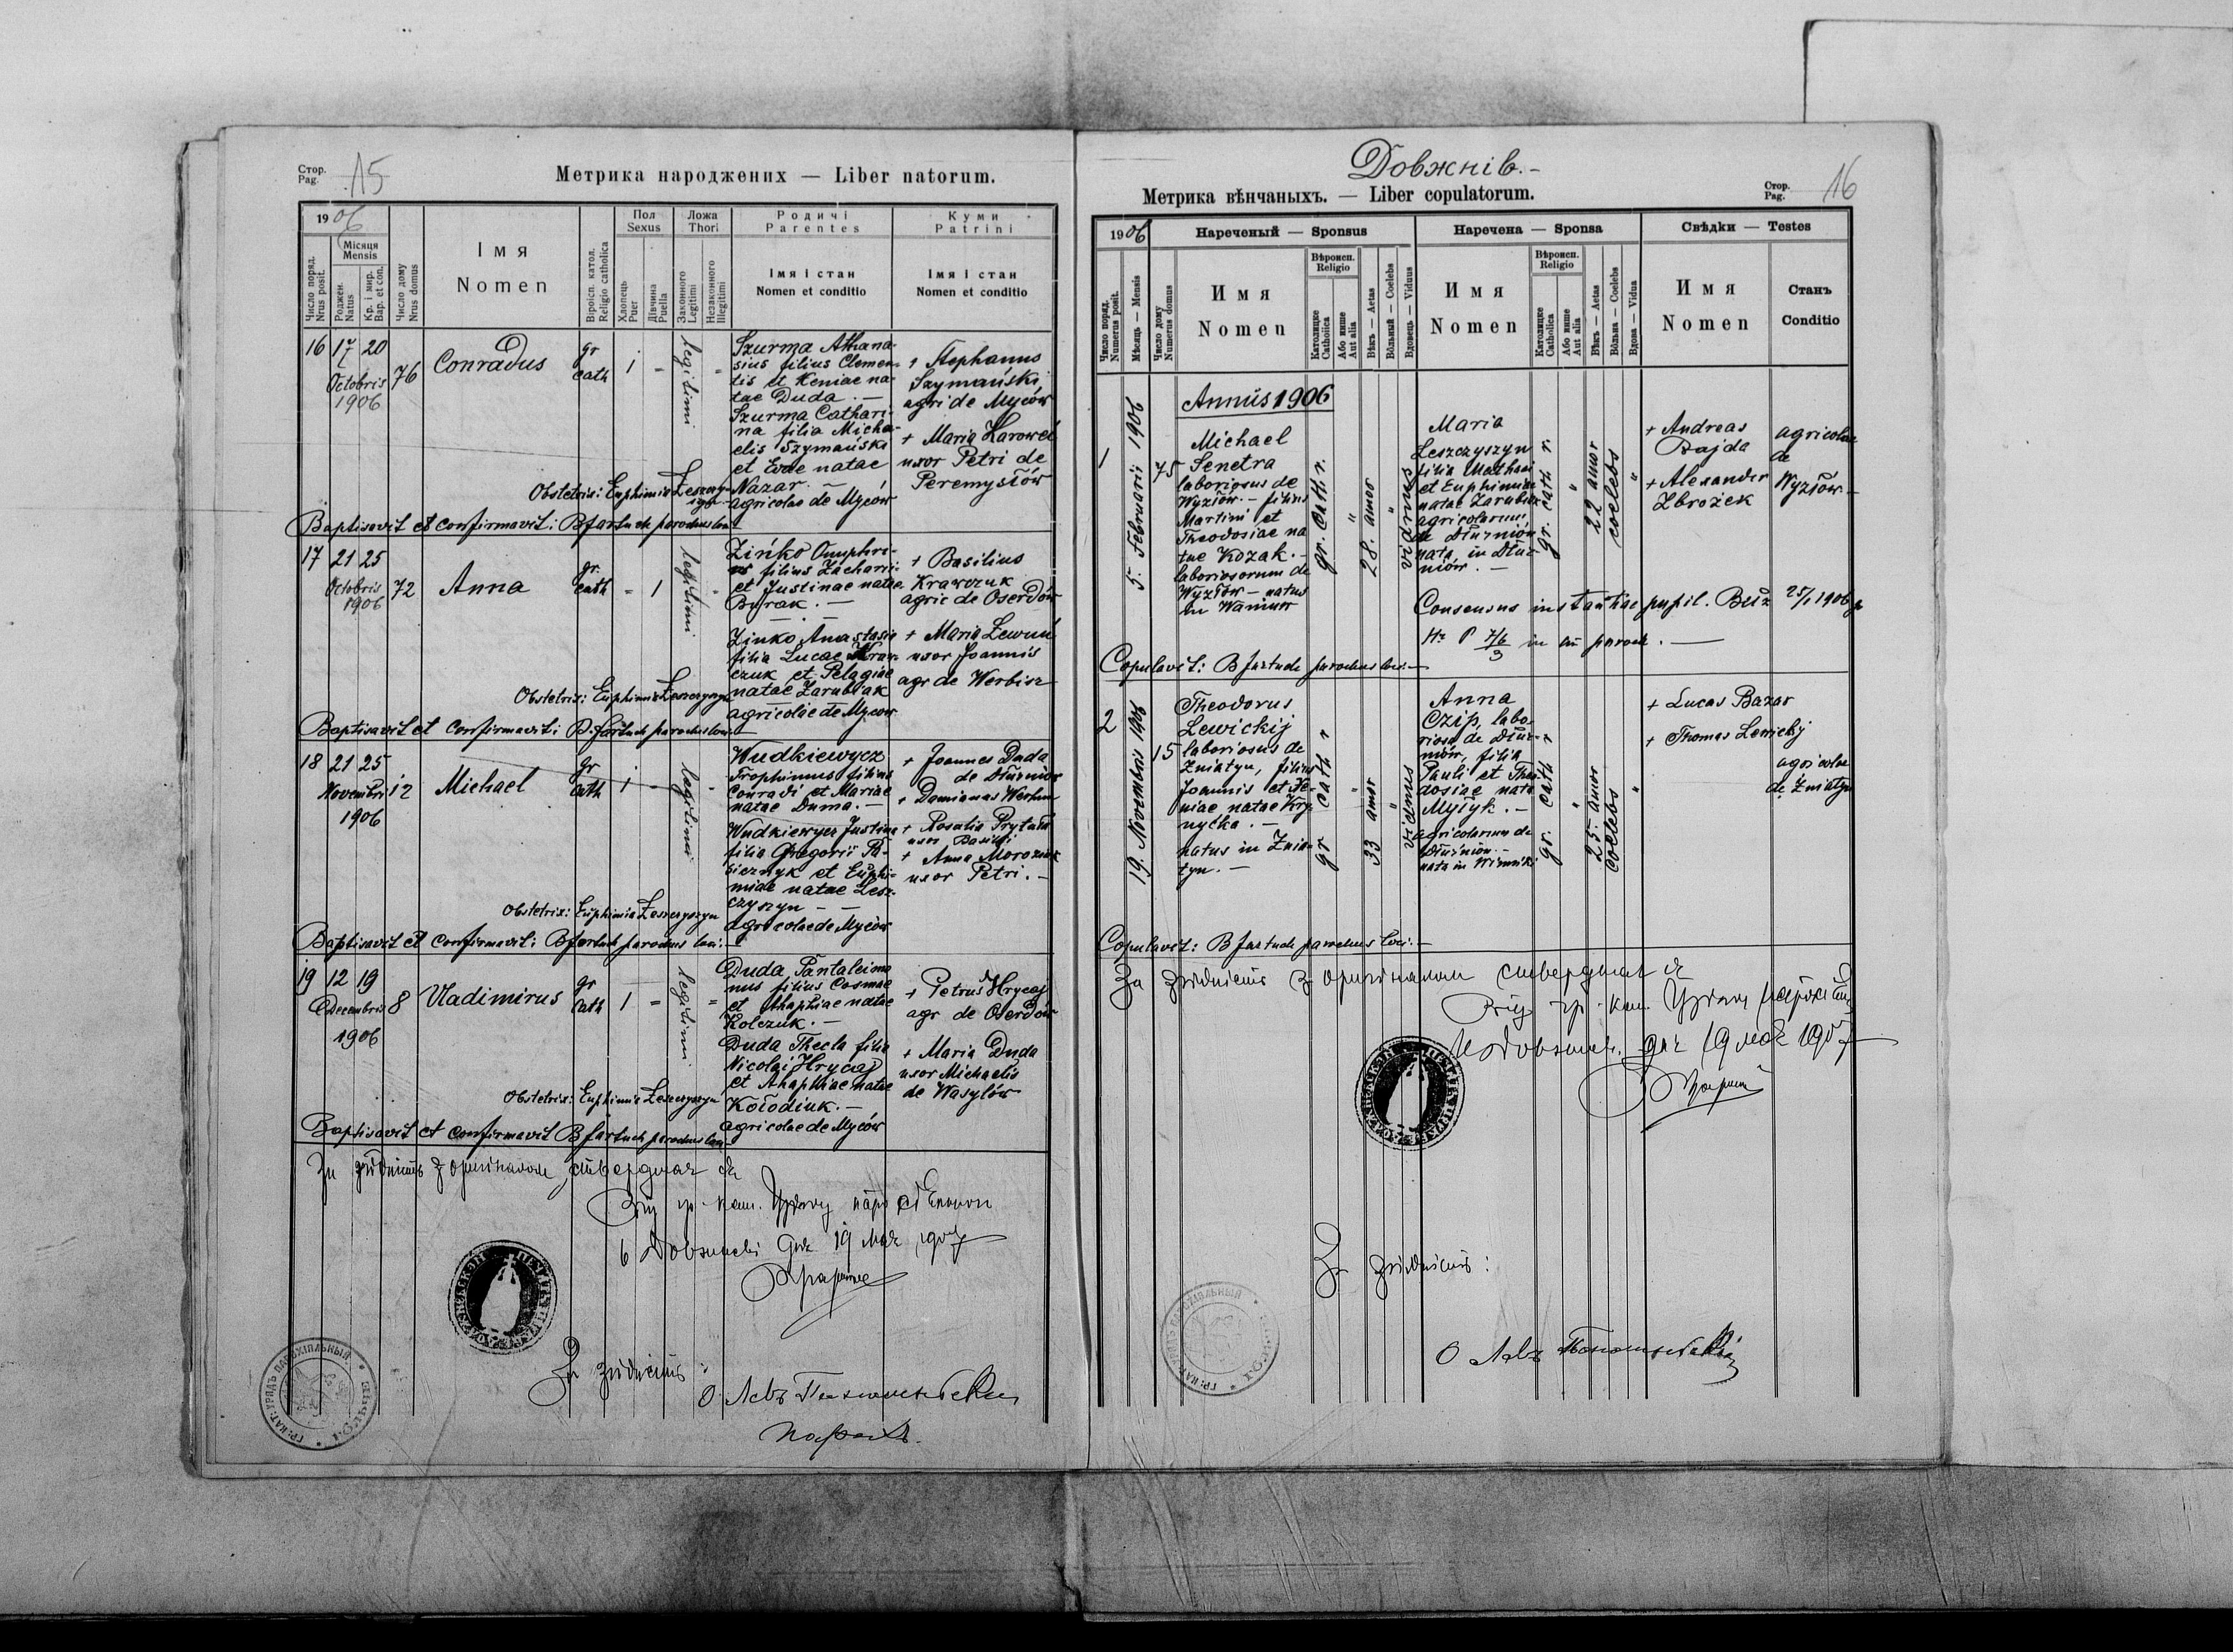 Стор.
Pag. 15
Метрика народжених — Liber natorum.
1906
Місяця
Mensis
Число поряд.
Nrus posit.
Роджен.
Natus
Кр. і мир.
Bap. et con.
Число дому
Nrus domus
Імя
Nomen
Віроісп. катол.
Religio catholica
Пол
Sexus
Хлопець
Puer
Дівчина
Puella
Ложа
Thori
Законного
Legitimi
Незаконного
Illegitimi
Родичі
Parentes
Імя і стан
Nomen et conditio
Куми
Patrini
Імя і стан
Nomen et conditio
16 17 20
Octobris
1906
76
Conradus
gr
cath
1 -
legitimi
Szurma Athana-
sius filius Clemen-
tis et Xeniae na-
tae Duda. —
Szurma Cathari-
na filia Micha-
elis Szymański
et Evae natae
Nazar. —
agricolae de Myców
+ Stephanus
Szymański
agri de Myców
+ Maria Harowei
uxor Petri de
Peremysłów
Obstetrix: Euphimia
Baptisavit et confirmavit: B fartuch parochus loci
17 21 25
Octobris
1906
72
Anna
gr
cath
- 1
legitimi
Zińko Onuphri-
us filius Zacharii
et Justinae natae
Byrak. —
Zinko Anastasia
filia Lucae Kraw-
czuk et Pelagiae
natae Zarubiak
agricolae de Myców
+ Basilius
Krawczuk
agric de Oserdów
+ Maria Lewuń
uxor Joannis
agr de Werbisz
Obstetrix: Euphimia Leszczyszyn
Baptisavit et confirmavit: B. fartuch parochus loci
18 21 25
Novembris
1906
12
Michael
gr
cath
1 -
legitimi
Wudkiewycz
Trophimus filius
Conradi et Mariae
natae Duma. —
Wudkiewycz Justina
filia Gregorii Pa-
siecznyk et Euphi-
miae natae Lesz-
czyszyn —
agricolae de Myców
+ Joannes Duda
de Dłużniow
+ Damianus
+ Rosalia Prytuła
uxor Basilii
+ Anna Morozuk
uxor Petri. —
Obstetrix: Euphimia Leszczyszyn
Baptisavit et confirmavit: B fartuch parochus loci. —
19 12 19
Decembris
1906
8
Vladimirus
gr
cath
1 -
legitimi
Duda Pantaleimo
nus filius Cosmae
et Ahaphiae natae
Kolczuk. —
Duda Thecla filia
Nicolai Hrycaj
et Ahaphiae natae
Kołodiuk. —
agricolae de Myców
+ Petrus Hrycaj
agr de Oserdów
+ Maria Duda
uxor Michaelis
de Wasylów
Obstetrix: Euphimia Leszczyszyn
Baptisavit et confirmavit B fartuch parochus loci
За згідність з оригіналом стверджає ся
гр-кат. Уряду
в Довжневі дня 19 мая 1907
За згідність:
О Левъ
парох
Довжнів. -
Метрика вѣнчаныхъ. — Liber copulatorum.
Стор.
Pag. 16
1906
Число поряд.
Numerus posit.
Мѣсяць — Mensis
Число дому
Numerus domus
Нареченый — Sponsus
Имя
Nomen
Вѣроисп.
Religio
Католицке
Catholica
Або инше
Aut alia
Вѣкъ — Aetas
Вôльный — Coelebs
Вдовець — Vidus
Наречена — Sponsa
Имя
Nomen
Вѣроисп.
Religio
Католицке
Catholica
Або инше
Aut alia
Вѣкъ — Aetas
Вôльна — Coelebs
Вдова — Vidua
Свѣдки — Testes
Имя
Nomen
Станъ
Conditio
Annus 1906
1
5. Februarii 1906
75
Michael
Senetra
laboriosus de
Wyżłów. — filius
Martini et
Theodosiae na
tae Kozak. —
laboriosorum de
Wyżłów — natus
in Waniow
gr. cath. r.
28. annor
viduus
Maria
Leszczyszyn
filia Mathaei
et Euphimiae
natae Zarubiak
agricolarum
de Dłużniów
nata in Dłuż-
niów. —
gr. cath r.
22 annor
coelebs
+ Andreas
Bajda
+ Alexander
Zbrożek
agricolae
de
Wyżłów —
Consensus instantiae pupil. Bełz 25/1 1906
in paroch. —
Copulavit: B fartuch parochus loci. —
2
19. Novembris 1906
15
Theodorus
Lewickij
laboriosus de
Zniatyn, filius
Joannis et Xe-
niae natae Kry-
nycka. —
natus in Znia-
tyn. —
gr cath r
33 annor
viduus
Anna
Czip, labo-
riosa de Dłuż-
niów, filia
Pauli et Theo-
dosiae nata
Mytyk. —
agricolarum de
Dłużniów —
nata in Winniki
gr. cath r
25. annor
coelebs
+ Lucas Bazar
+ Thomas Lewickij
agricolae
de Żniatyn
Copulavit: B fartuch parochus loci. —
За згідність з оригіналом стверджає ся
гр-кат. Уряд
дня 19 мая 1907
За згідність:
О Левъ